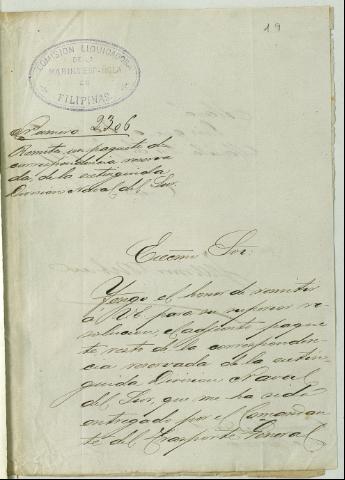 19
COMISIÓN LIQUIDADORA
DE LA
MARINA ESPAÑOLA
EN
FILIPINAS
Número 2306
Remite un paquete de
correspondencia reserva
da, de la extinguida
Division Naval del Sur.
Excmo. Sor.
Tengo el honor de remitir
a V.E. para su superior re
solucion el adjunto paque
te resto de la corresponden
cia reservada de la extin
guida Division Naval
del Sur, que me ha sido
entregado por el Comandan
te del Trasporte General